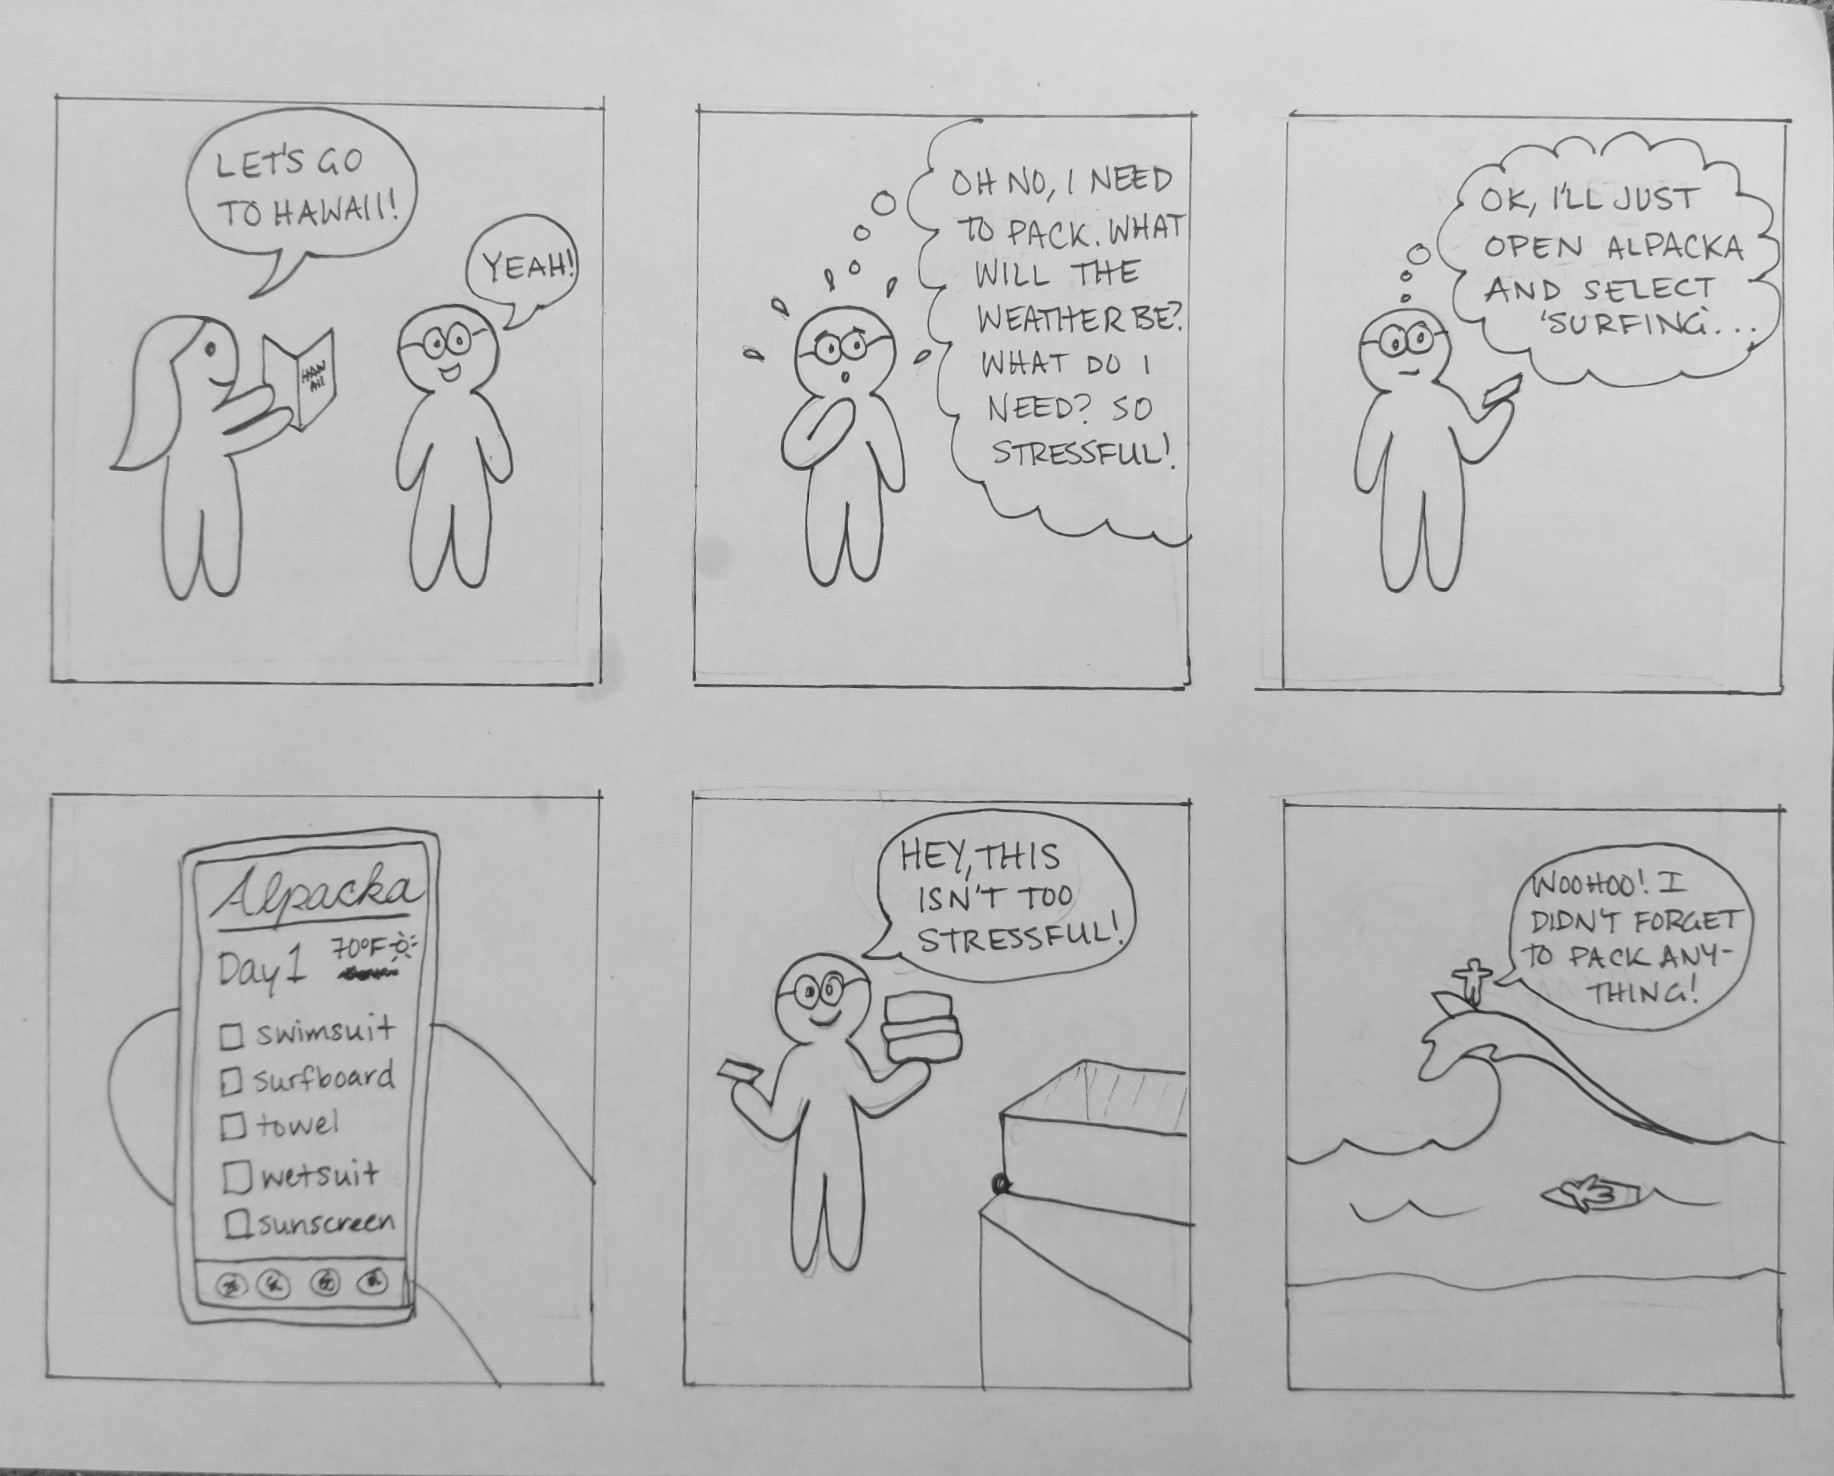 LET'S GO
TO HAWAII!
YEAH!
HAW
AII
OH NO, I NEED
TO PACK. WHAT
WILL THE
WEATHER BE?
WHAT DO I
NEED? SO
STRESSFUL!
OK, I'LL JUST
OPEN ALPACKA
AND SELECT
'SURFING'...
Alpacka
Day 1 70°F
swimsuit
surfboard
towel
wetsuit
sunscreen
HEY, THIS
ISN'T TOO
STRESSFUL!
WOOHOO! I
DIDN'T FORGET
TO PACK ANY-
THING!